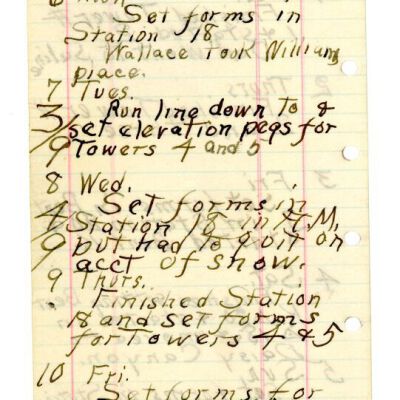 6 Mon
Set forms in
Station 18
Wallace Took William
place.
7 Tues.
Run line down To &
3/9 set elevation pegs for
Towers 4 and 5
8 Wed.
Set forms in
4/9 Station 18 in A.M,
but had to quit on
acct of snow.
9 Thurs.
Finished Station
18 and set forms
for Towers 4 & 5
10 Fri.
Set forms for